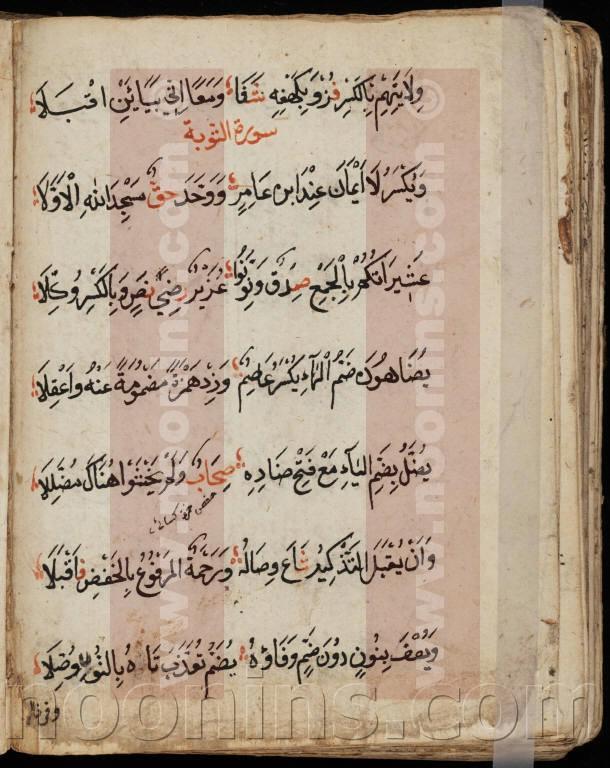 وِلَايَتِهِمْ بِالْكَسْرِ فُزْ وَبِكَهْفِهِ شَفَا وَمَعًا إِنِّي بِيَاءَيْنِ اقْبَلَا
سورة التوبة
وَيُكْسَرُ لَا أَيْمَانَ عِنْدَ ابْنِ عَامِرٍ وَوَحَّدَ حَقٌّ مَسْجِدَ اللهِ الْأَوَّلَا
عَشِيرَاتُكُمْ بِالْجَمْعِ صِدْقٌ وَنَوِّنُوا عُزَيْرٌ رِضَى نَصٍّ وَبِالْكَسْرِ وُكِّلَا
يُضَاهُونَ ضَمُّ الْهَاءِ يَكْسِرُ عَاصِمٌ وَزِدْ هَمْزَةً مَضْمُومَةً عَنْهُ وَاعْقِلَا
يُضَلُّ بِضَمِّ الْيَاءِ مَعْ فَتْحِ ضَادِهِ صِحَابٌ وَلَمْ يَخْشَوْا هُنَاكَ مُضَلِّلَا
وَأَنْ يُقْبَلَ التَّذْكِيرُ شَاعَ وِصَالُهُ وَرَحْمَةٌ الْمَرْفُوعُ بِالْخَفْضِ فَاقْبَلَا
وَيُعْفَ بِنُونٍ دُونَ ضَمٍّ وَفَاؤُهُ يُضَمُّ تُعَذَّبْ تَاهُ بِالنُّونِ وُصِّلَا
noonins.com
www.noonins.com ©
www.noonins.com ©